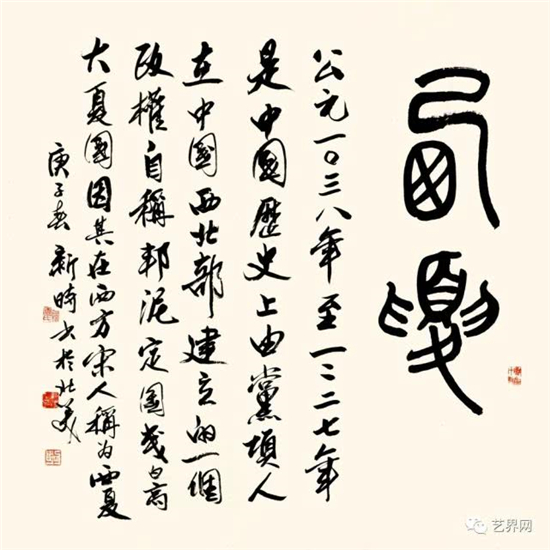 西夏
公元一〇三八年至一二二七年
是中國歷史上由黨項人
在中國西北部建立的一個
政權自稱邦泥定國或白高
大夏國因其在西方宋人稱為西夏
庚子春新時书於北美
艺界网